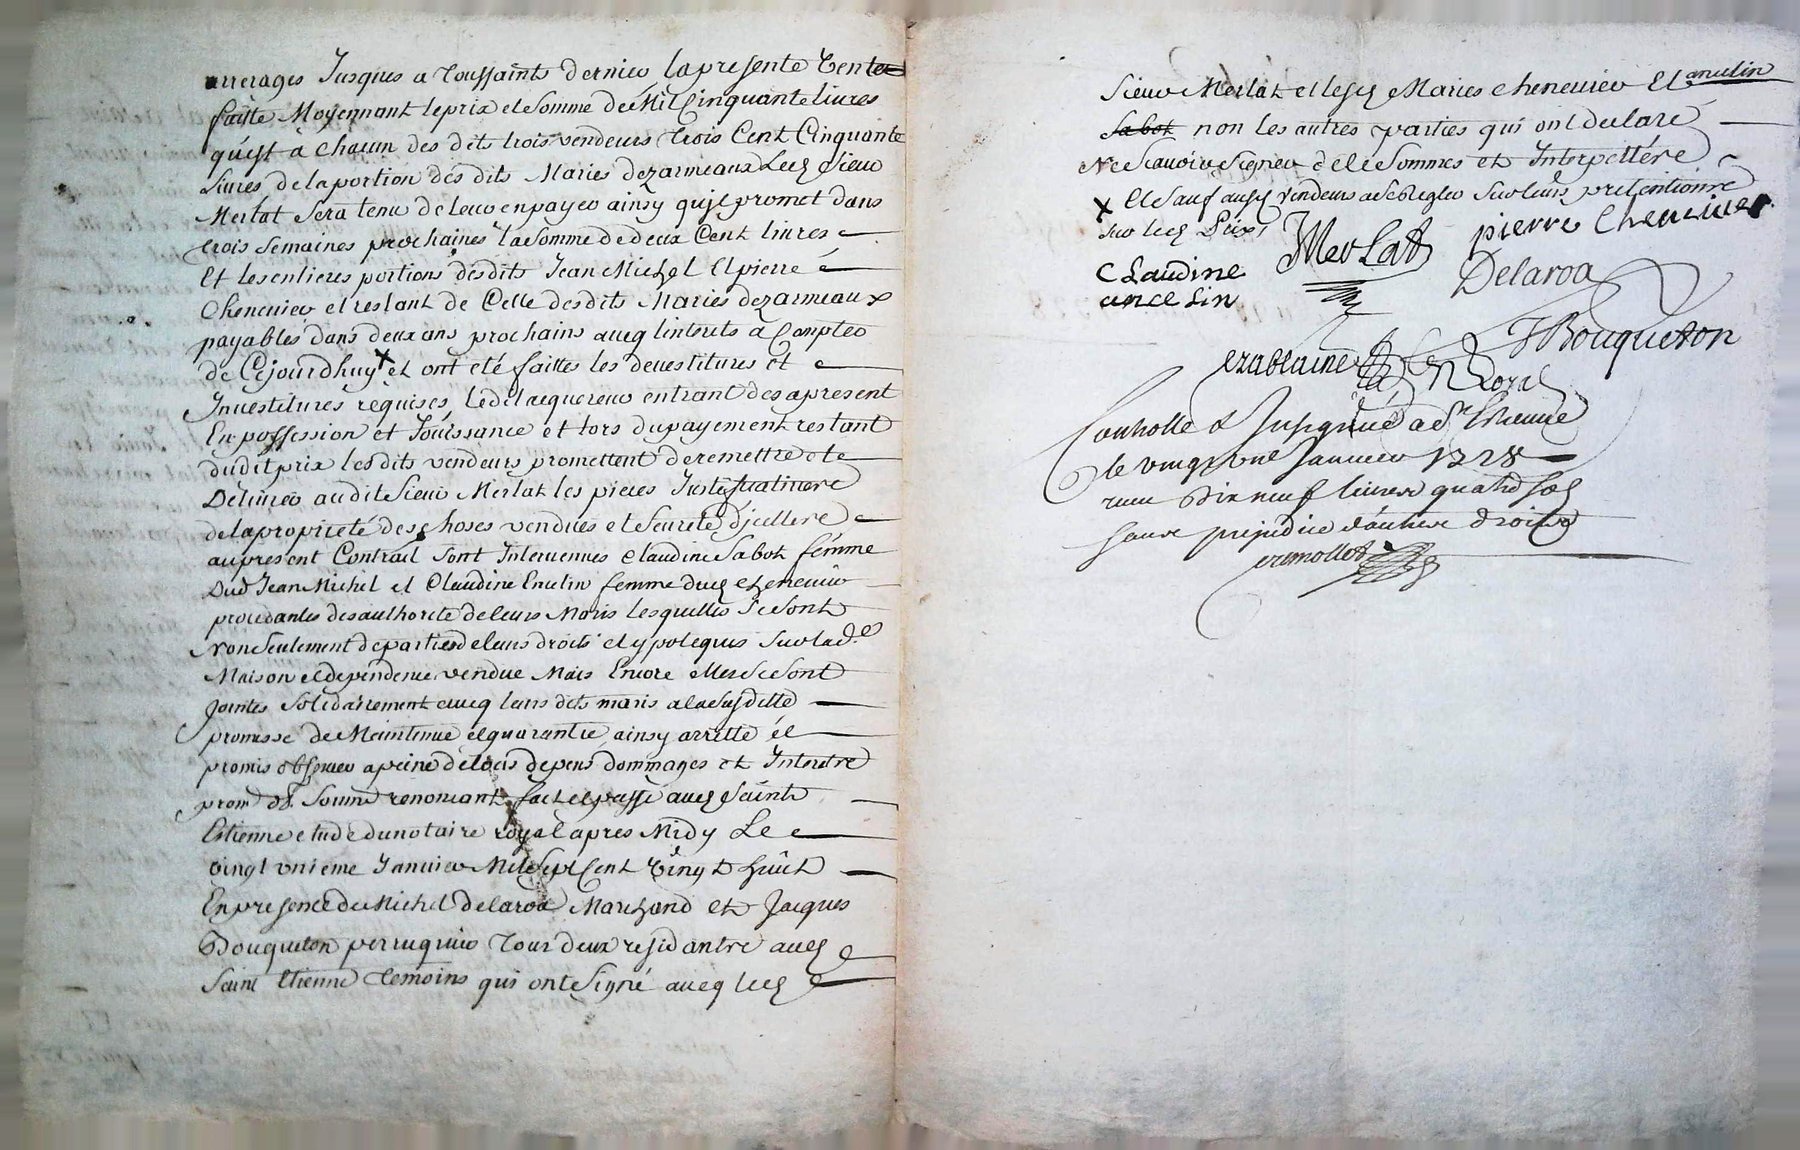 arrerages Jusques a Toussaints dernier la presente vente
faitte Moyennant le prix et somme de Mil Cinquante livres
qu'est a chacun des dits trois vendeurs trois Cent Cinquante
livres de la portion des dits Maries dezarmeaux Led Sieur
Merlat sera tenu de leur en payer ainsy qu'jl promet dans
trois semaines prochaines la somme de deux Cent livres
Et les entieres portions desdits Jean Michel Et pierre
Chenevier et restant de Celle desdits Maries dezarmeaux
payables dans deux ans prochains avecq linterets a Compter
de Cejourdhuy x et ont eté faittes les devestitures et
Investitures requises, Ledit acquereur entrant des apresent
En possession et Jouissance et lors du payement restant
dudit prix lesdits vendeurs promettent de remettre et
Delivrer audit Sieur Merlat les pieces Justifficatives
de la proprieté des choses vendues et seureté d'jcelles
au present Contrait sont Intervenues Claudine Sabot femme
Dud Jean Michel et Claudine Enulin femme dud Chenevier
procedantes des authorité de leurs Maris lesquelles se sont
non seulement departies de leurs droits et ypoteques sur lade
Maison et dependence vendue Mais Encore elles se sont
Jointes solidairement avecq leurs dits maris a la susditte
promesse de Maintenue et guarantie ainsy arretté et
promis observer a peine de tous depens dommages et Interets
prom ob soumis renoncant fait et passé aud Saint
Estienne etude du notaire royal apres Midy Le
vingt vnieme Janvier Mil Sept Cent Vingt huit
En presence de Michel Delaroa Marchand et Jacques
Bouqueton perruquier Tous deux residants aud
Saint Etienne temoins qui ont Signé avecq led
Sieur Merlat et lesd Maries Chenevier Et anulin
Sabot non les autres parties qui ont declaré
Ne Scavoir Signer de ce Sommes et Interpellés
x Et sauf ausd vendeurs a se regler sur leurs pretentions
sur led prix
JMerlat pierre Chenevier
Claudine
ancelin
Delaroa
JBouqueton
Controllé & Insinué a St Etienne
le vingt vne Janvier 1728
receu dix neuf livres quatre sols
sans prejudice d'autres droits